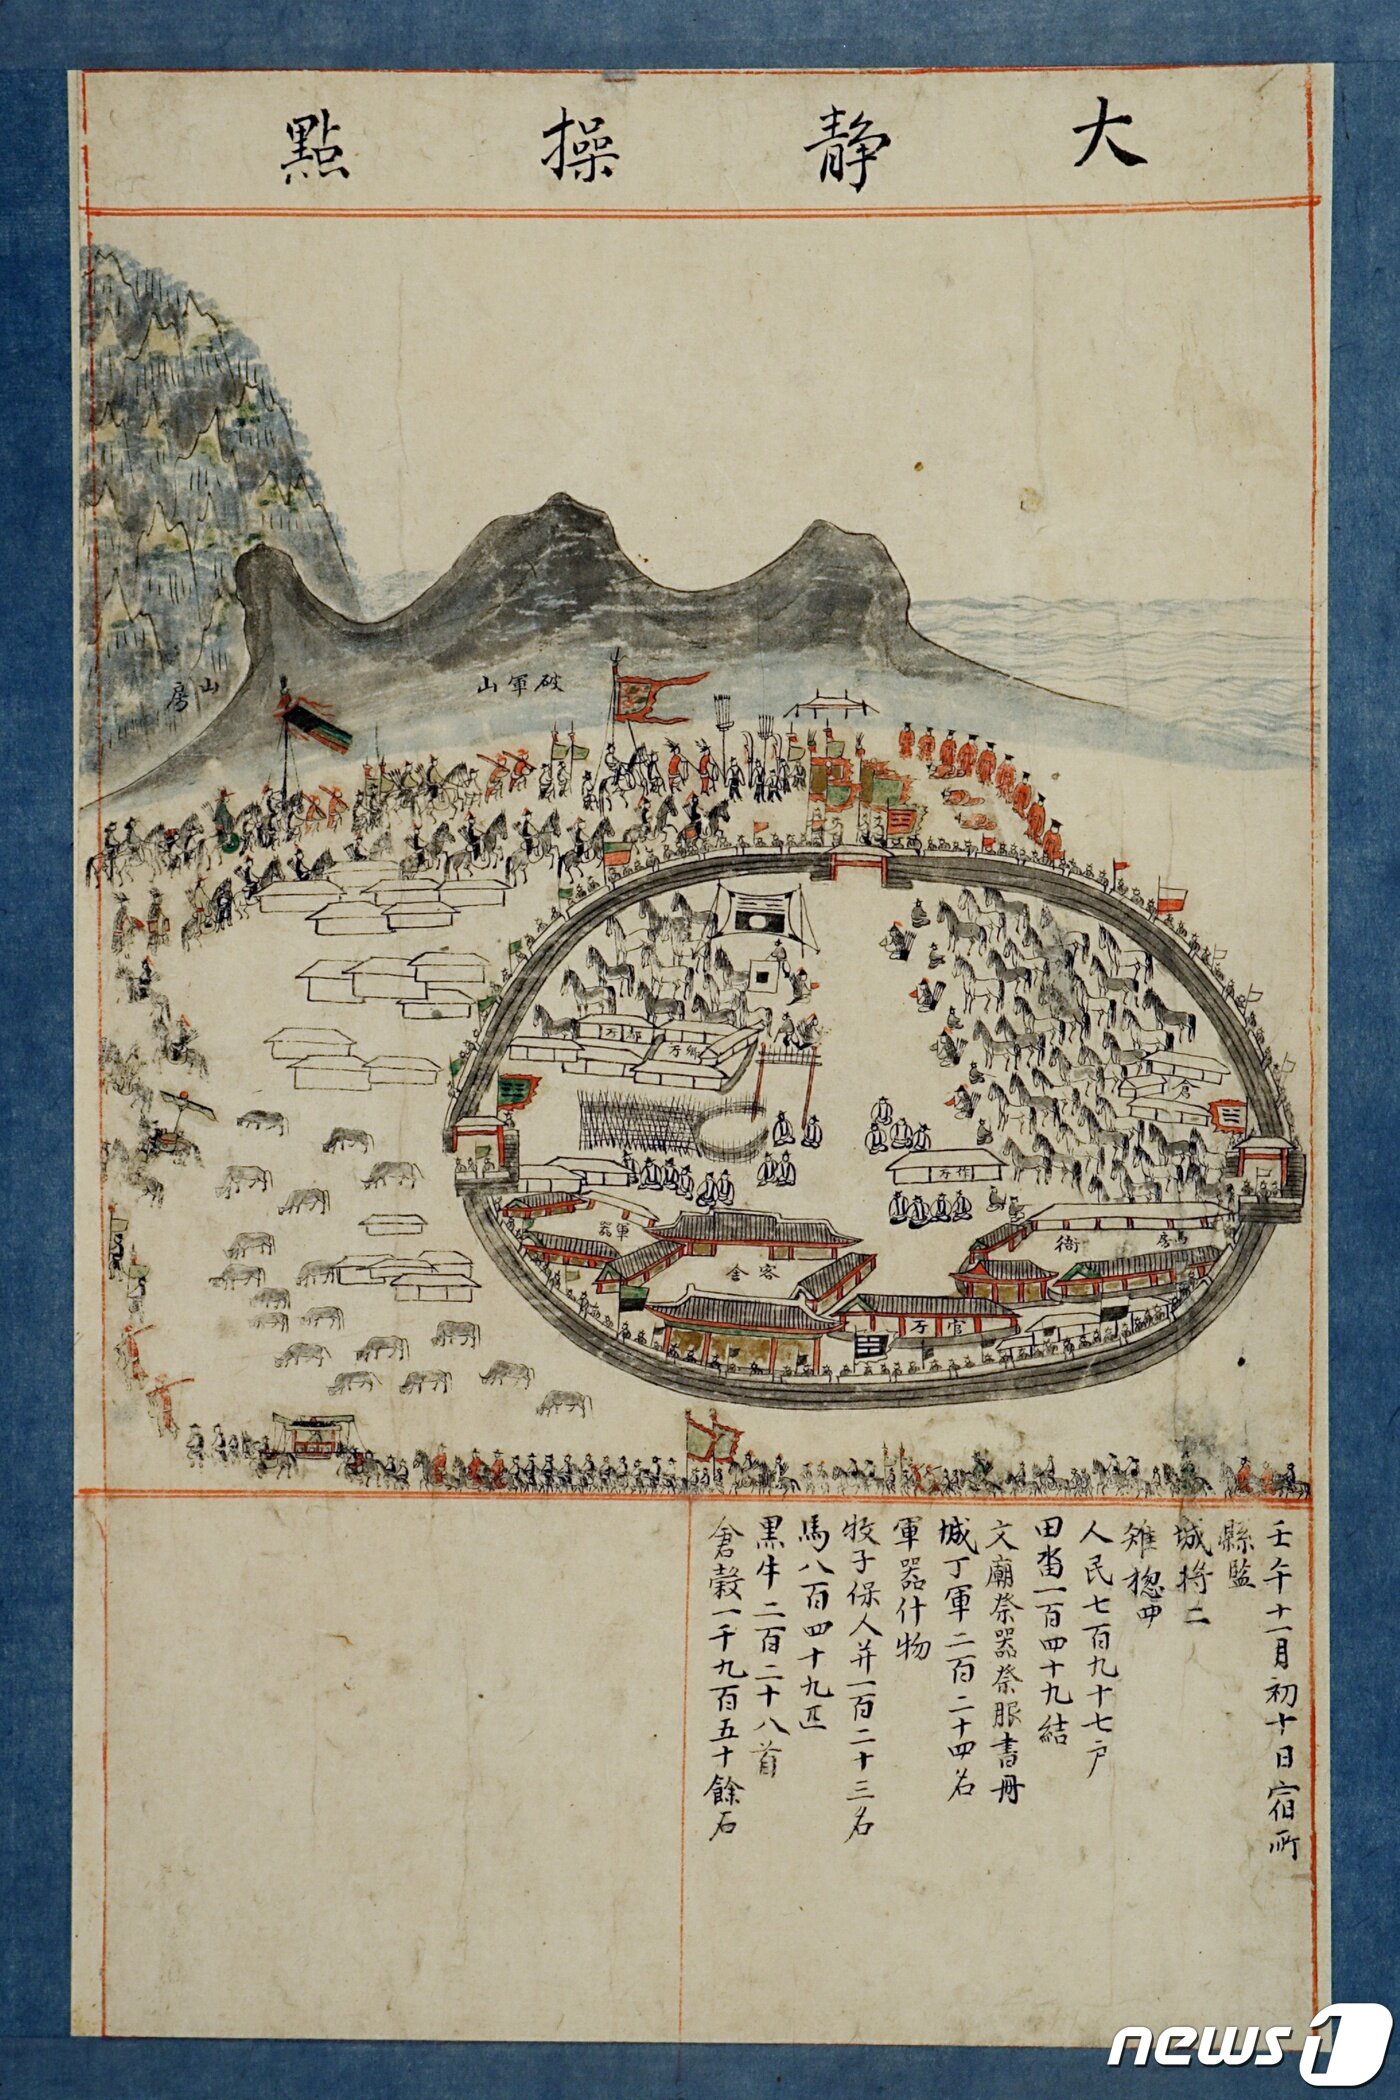 大靜操點
山房
破軍山
鄕所
倉
作所
軍器
客舍
衙
馬房
官所
壬午十一月初十日宿所
縣監
城將二
雉摠四
人民七百九十七戶
田畓一百四十九結
文廟祭器祭服書冊
城丁軍二百二十四名
軍器什物
牧子保人并一百二十三名
馬八百四十九匹
黑牛二百二十八首
倉穀一千九百五十餘石
news1